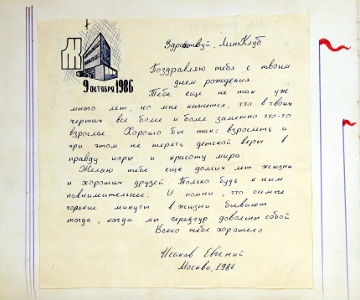 Здравствуй, ЛитКлуб
Ж
9 ОКТЯБРЯ 1986
Поздравляю тебя с твоим
днем рождения.
Тебе еще не так уж
много лет, но мне кажется, что в твоих
чертах все более и более заметно что-то
взрослое. Хорошо бы так: взрослеть и
при этом не терять детской веры в
правду игры и красоту мира.
Желаю тебе еще долгих лет жизни
и хороших друзей. Только будь к ним
повнимательнее. И помни, что самые
горькие минуты в жизни бывают
тогда, когда мы чересчур довольны собой
Всего тебе хорошего
Исаков Евгений
Москва, 1986